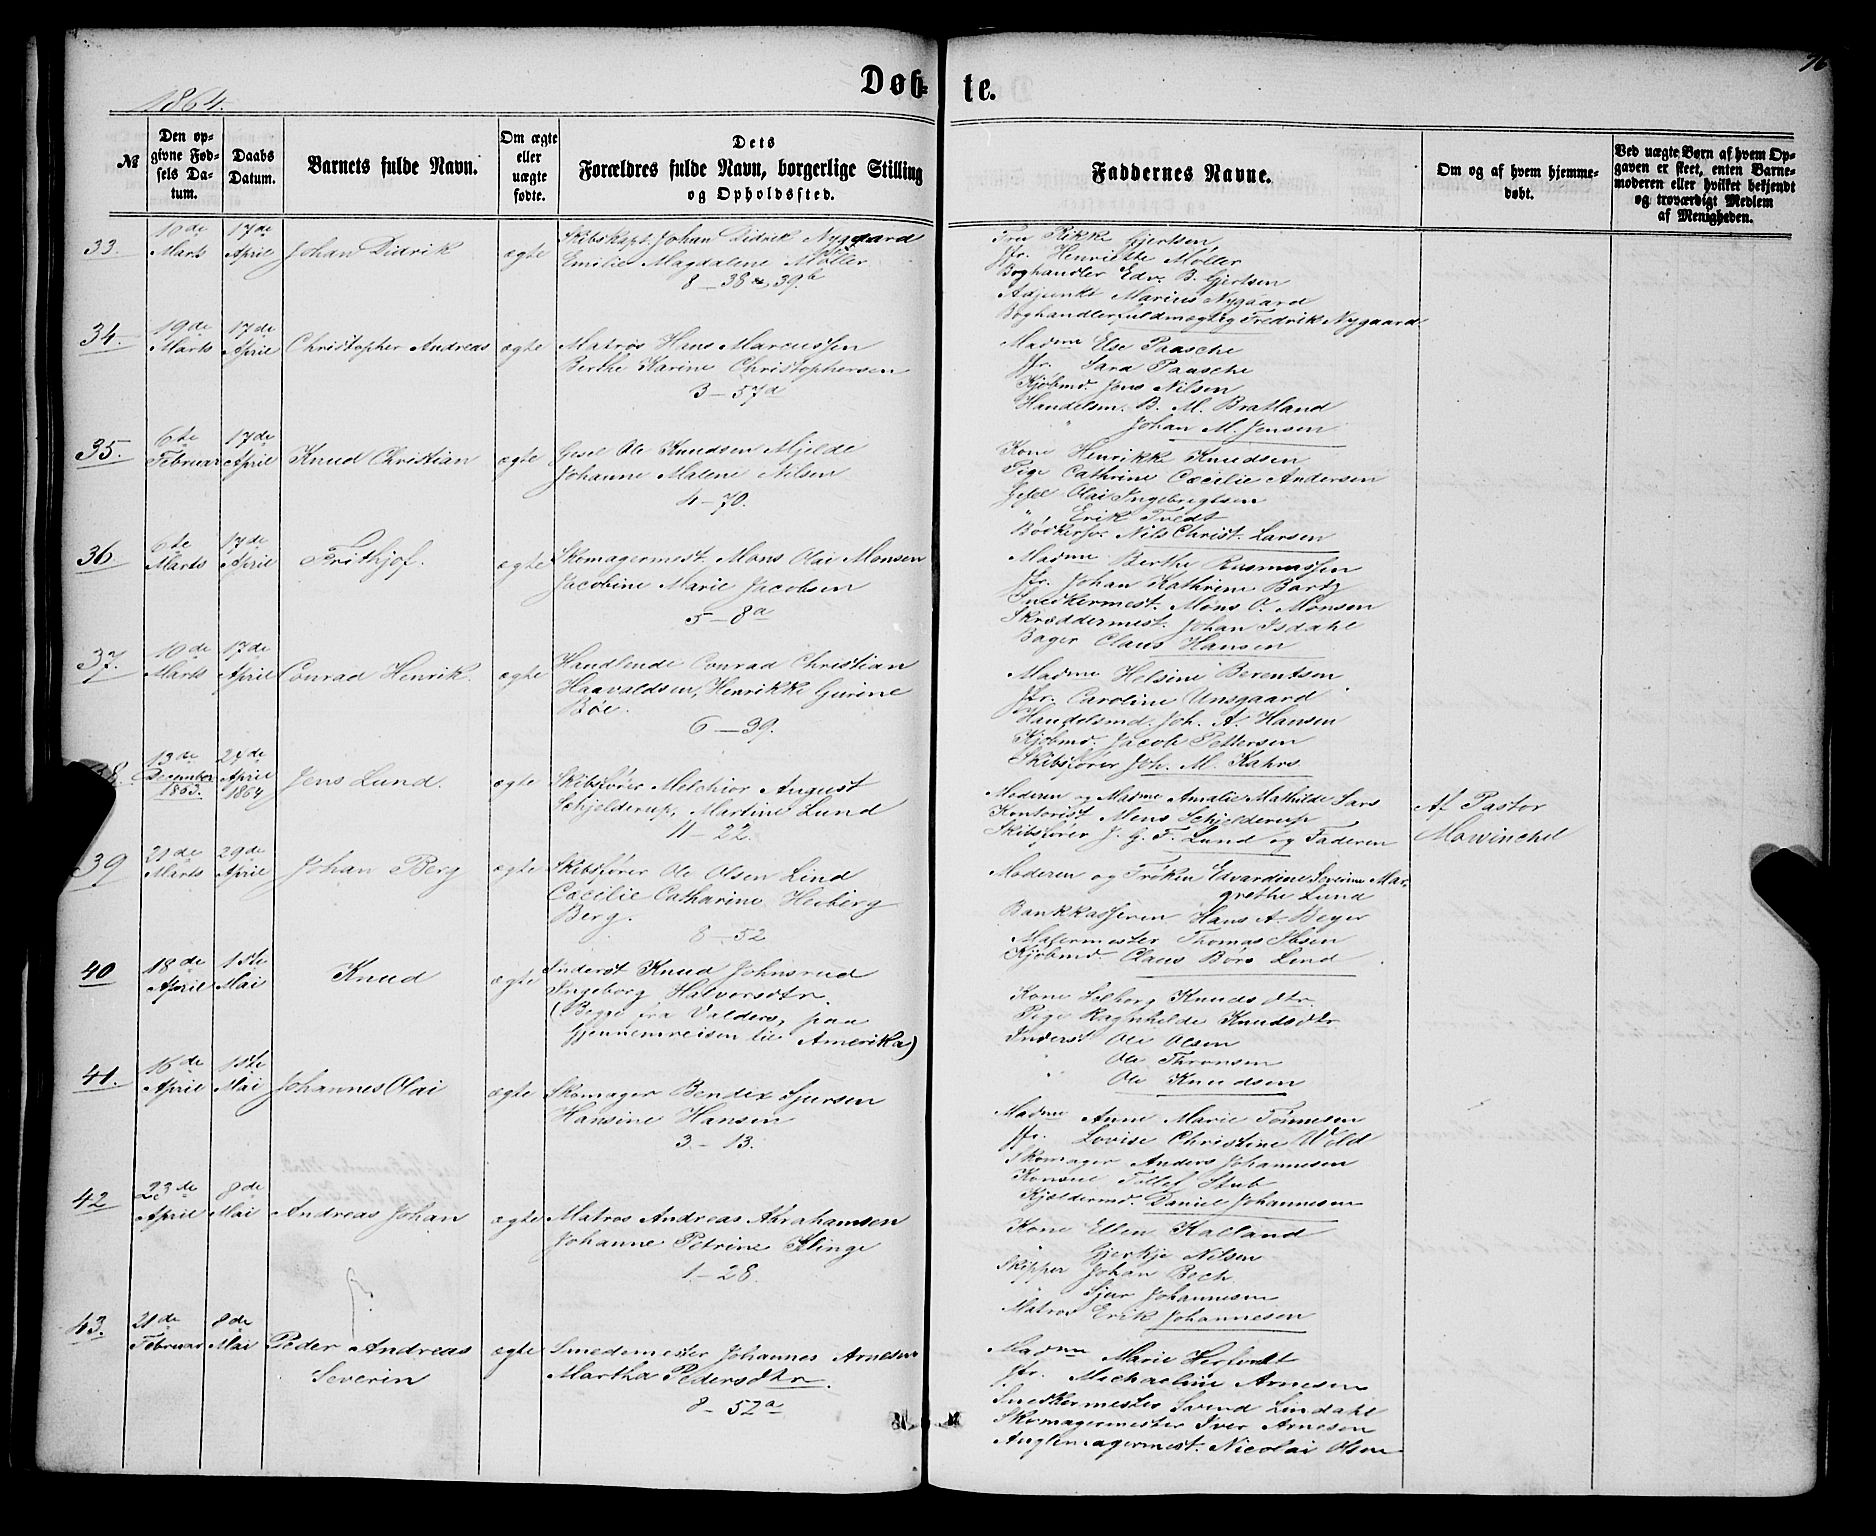 76
1864.
Døb-
te.
№
Den op-
givne Fød-
sels Da-
tum.
Daabs
Datum.
Barnets fulde Navn.
Om ægte
eller
uægte
fødte.
Dets
Forældres fulde Navn, borgerlige Stilling
og Opholdssted.
Faddernes Navne.
Om og af hvem hjemme-
døbt.
Ved uægte Børn af hvem Op-
gaven er skeet, enten Barne-
moderen eller hvilket bekjendt
og troværdigt Medlem
af Menigheden.
33.
10de
Marts
17de
April
Johan Didrik
ægte
Skibskapt. Johan Didrik Nygaard
Emilie Magdalene Møller
8 – 38 & 39b
Fru Rikke Gjertsen
Jfr. Henriette Møller
Boghandler Edv. B. Gjertsen
Adjunkt Marius Nygaard
Boghandlerfuldmægtig Fredrik Nygaard
34.
19de
Marts
17de
April
Christopher Andreas
ægte
Matros Hans Marcussen
Berthe Karine Christophersen
3 – 57a
Madme Else Paasche
Jfr. Sara Paasche
Kjøbmd. Jens Nilsen
Handelsm. B. M. Bratland
" Johan M. Jensen
35.
6te
Februar
17de
April
Knud Christian
ægte
Gesel Ole Knudsen Mjelde
Johanne Malene Nilsen
4 – 70.
Kone Henrikke Knudsen
Pige Cathrine Cæcilie Andersen
Gesel Olai Ingebrigtsen
" Erik Tvedt
Bødkersv. Nils Christ. Larsen
36.
6te
Marts
17de
April
Frithjof.
ægte
Skomagermest. Mons Olai Monsen
Jacobine Marie Jacobsen
5 – 8a
Madme Berthe Rasmussen
Jfr. Johan Kathrine Bartz
Snedkermest. Mons O. Monsen
Skræddermest. Johan Isdahl
Bager Claus Hansen
37.
10de
Marts
17de
April
Conrad Henrik.
ægte
Handlende Conrad Christian
Haavaldsen, Henrikke Gurine
Bøe.
6 – 39.
Madme Helsine Berentsen
Jfr. Caroline Unsgaard
Handelsmd. Joh. A. Hansen
Kjøbmd. Jacob Pettersen
Skibsfører Joh. M. Kahrs
38.
13de
December
1863.
24de
April
1864
Jens Lund.
ægte
Skibsfører Melchior August
Schjelderup, Martine Lund
11 – 22.
Moderen og Madme Amalie Mathilde Sars
Kontorist Mens Schjelderup
Skibsfører J. G. F. Lund og Faderen
Af Pastor
Mowinckel
39
21de
Marts
29de
April
Johan Berg
ægte
Skibsfører Ole Olsen Lind
Cæcilie Catharine Heiberg
Berg.
8 – 52
Moderen og Frøken Edvardine Severine Mar-
grethe Lund
Bankkasserer Hans A. Beyer
Malermester Thomas Ibsen
Kjøbmd. Claus Børs Lind
40
18de
April
1ste
Mai
Knud
ægte
Inderst Knud Johnsrud
Ingeborg Halvorsdtr.
(Begge fra Valders, paa
Gjennemreisen til Amerika)
Kone Solborg Knudsdtr.
Pige Ragnhilde Knudsdtr
Inderst Ole Olsen
" Ole Thronsen
Ole Knudsen
41.
16de
April
1ste
Mai
Johannes Olai
ægte
Skomager Bendix Sjursen
Hansine Hansen
3 – 13.
Madme Anne Marie Tønnesen
Jfr. Lovise Christine Wold
Skomager Anders Johannesen
Konsul Tollef Stub
Kjældermd. Daniel Johannesen
42
23de
April
8de
Mai
Andreas Johan
ægte
Matros Andreas Abrahamsen
Johanne Petrine Klinge
1 – 28.
Kone Ellen Kalland
" Gjertje Nilsen
Skipper Johan Bech
" Sjur Johannesen
Matros Erik Johannesen
43.
21de
Februar
8de
Mai
Peder Andreas
Severin
ægte
Smedemester Johannes Arnesen
Martha Pedersdtr.
8 – 52a
Madme Marie Herfindt
Jfr. Michaeline Arnesen
Snedkermester Svend Lindahl
Skomagermester Iver Arnesen
Nicolai Olsen